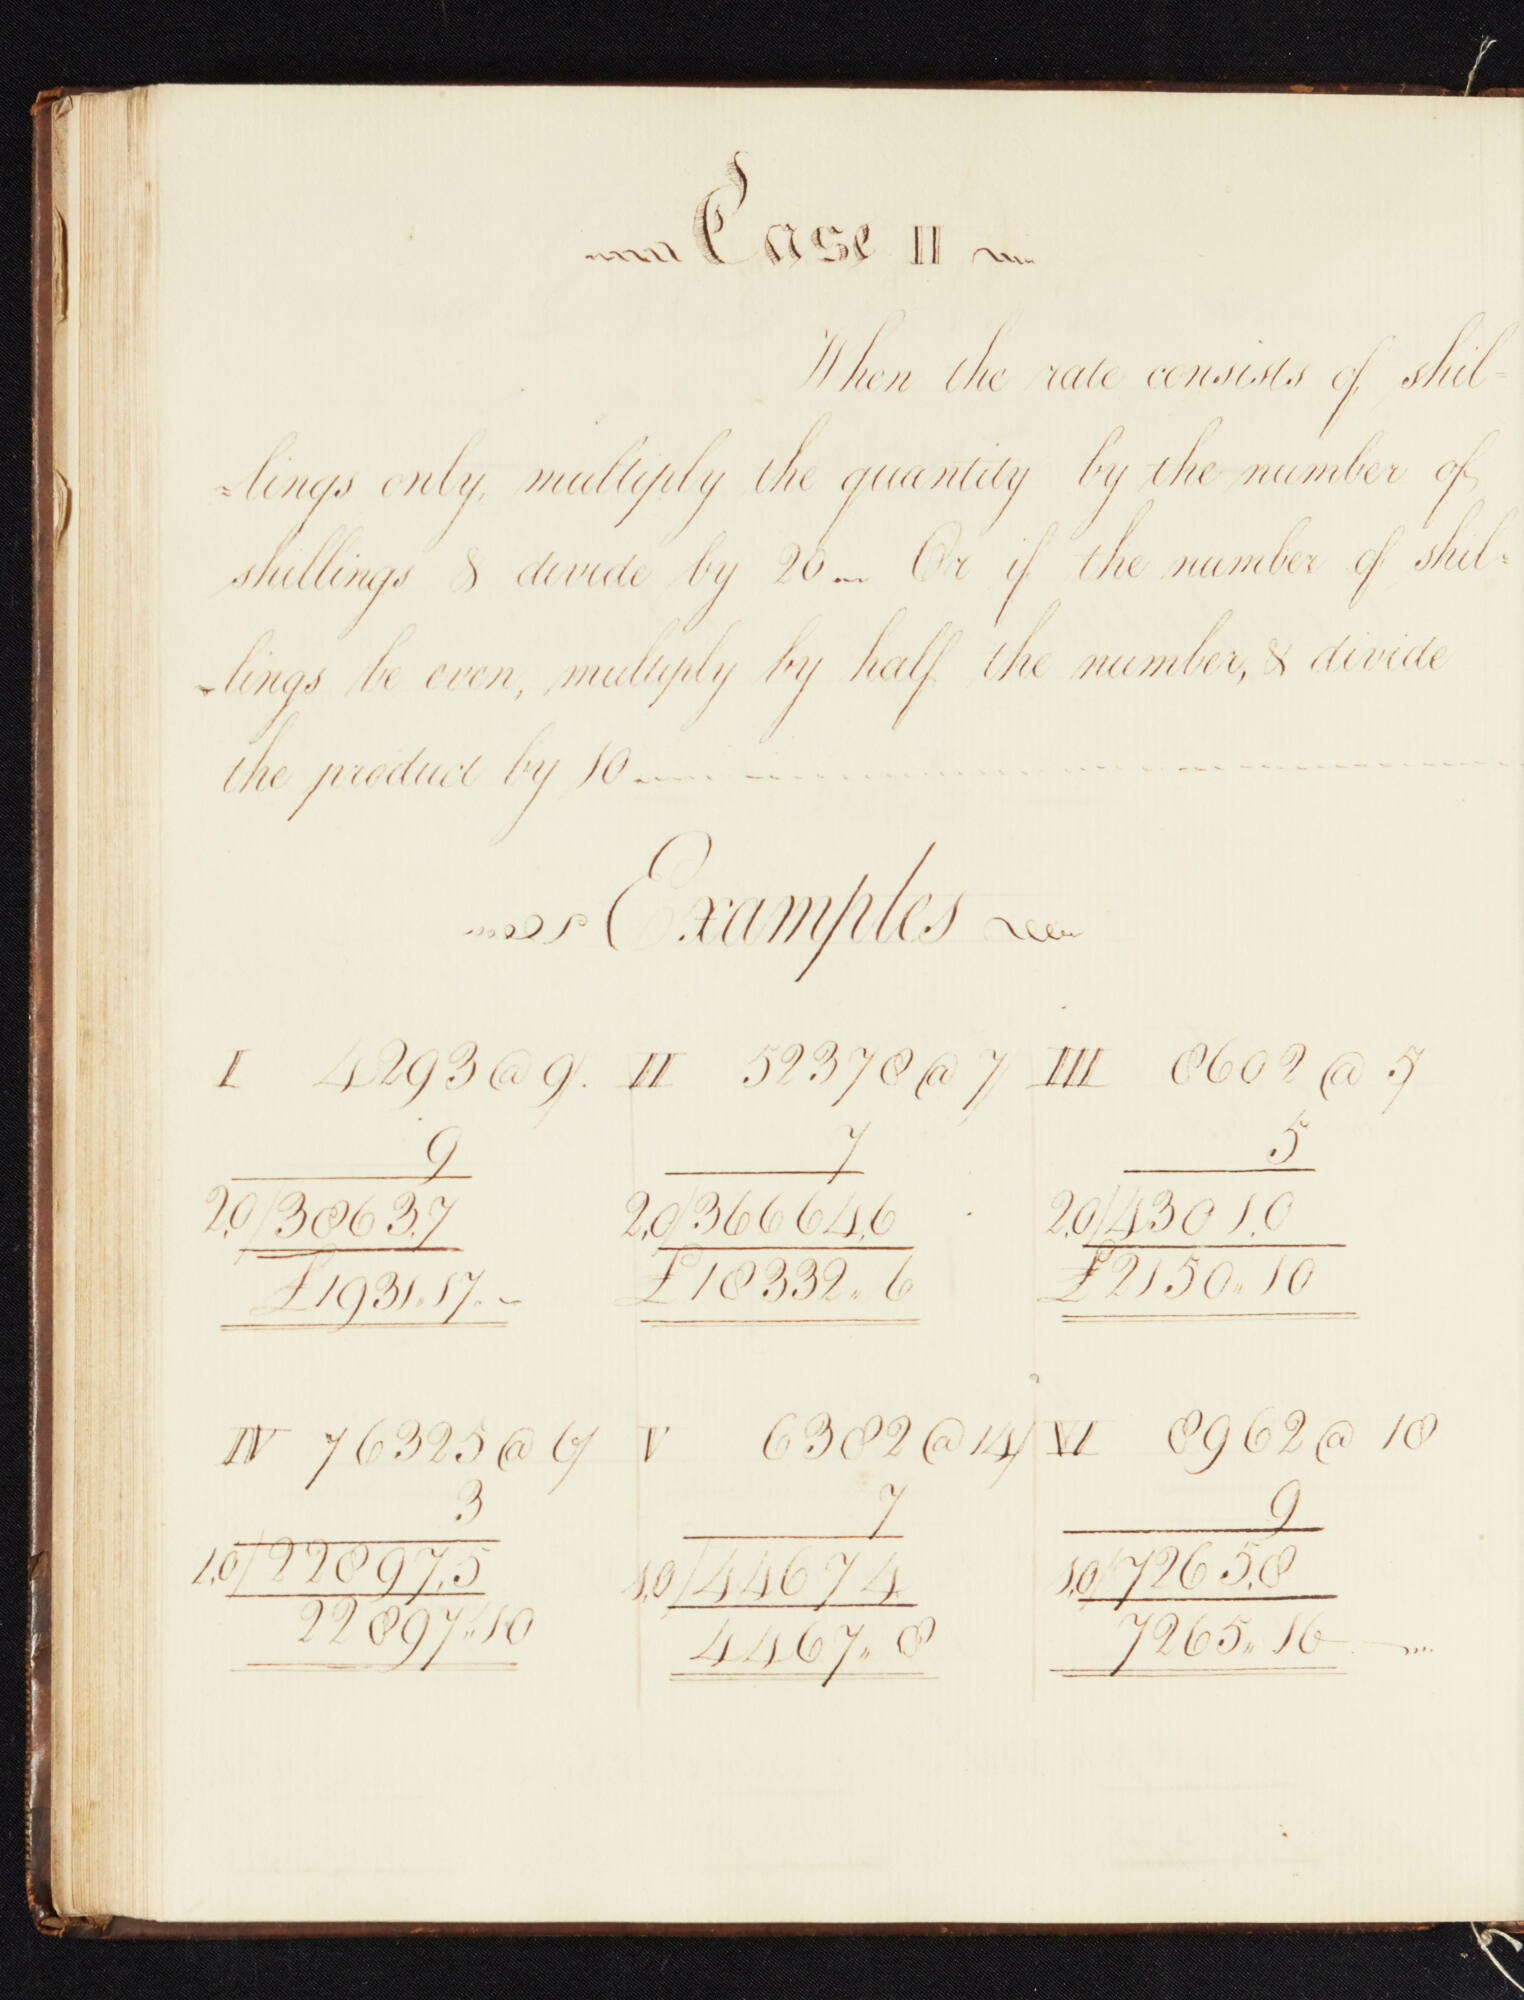 Case II
When the rate consists of shil=
=lings only, multiply the quantity by the number of
shillings & divide by 20 Or if the number of shil=
-lings be even, multiply by half the number, & divide
the product by 10
Examples
I 4293 @ 9/. II 52378 @ 7/ III 8602 @ 5/
9 7 5
2,0/3863,7 2,0/36664,6 2,0/4301,0
£1931,,17.- £18332,,6 £2150,,10
IV 76325 @ 6/ V 6382 @ 14/ VI 8962 @ 18
3 7 9
1,0/22897,5 1,0/44674 1,0/7265,8
22897,,10 4467,,8 7265,,16